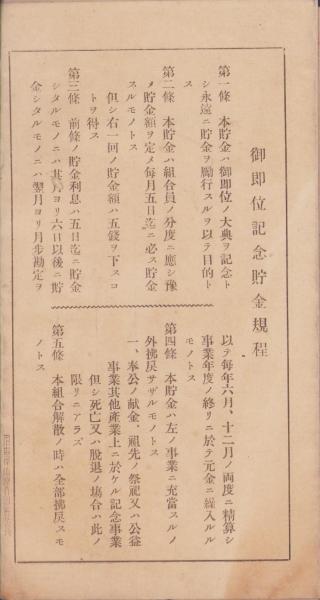 御即位記念貯金規程
第一條　本貯金ハ御即位ノ大典ヲ記念ト
シ永遠ニ貯金ヲ勵行スルヲ以テ目的ト
ス
第二條　本貯金ハ組合員ノ分度ニ應シ豫
メ貯金額ヲ定メ毎月五日迄ニ必ス貯金
スルモノトス
但シ右一回ノ貯金額ハ五錢ヲ下スコ
トヲ得ス
第三條　前條ノ貯金利息ハ五日迄ニ貯金
シタルモノニハ其月ヨリ六日以後ニ貯
金シタルモノニハ翌月ヨリ月歩勘定ヲ
以テ毎年六月、十二月ノ兩度ニ精算シ
事業年度ノ終リニ於テ元金ニ繰入ルル
モノトス
第四條　本貯金ハ左ノ事業ニ充當スルノ
外拂戻サザルモノトス
一、奉公ノ献金、祖先ノ祭祀又ハ公益
事業其他產業上ニ於ケル記念事業
但シ死亡又ハ脫退ノ塲合ハ此ノ
限リニアラズ
第五條　本組合解散ノ時ハ全部拂戻スモ
ノトス